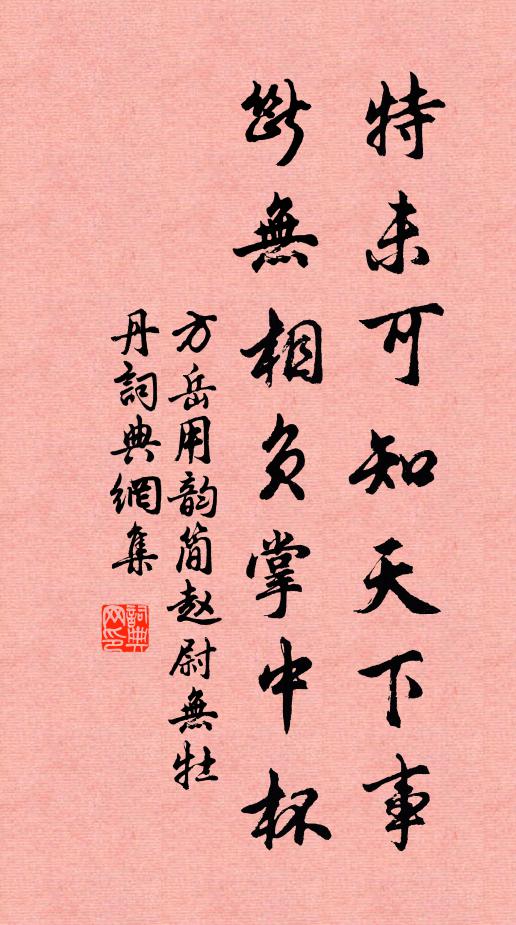 特未可知天下事
斷無相负掌中杯
方岳用韵简赵尉無牡
丹詞典網集
詞典网印